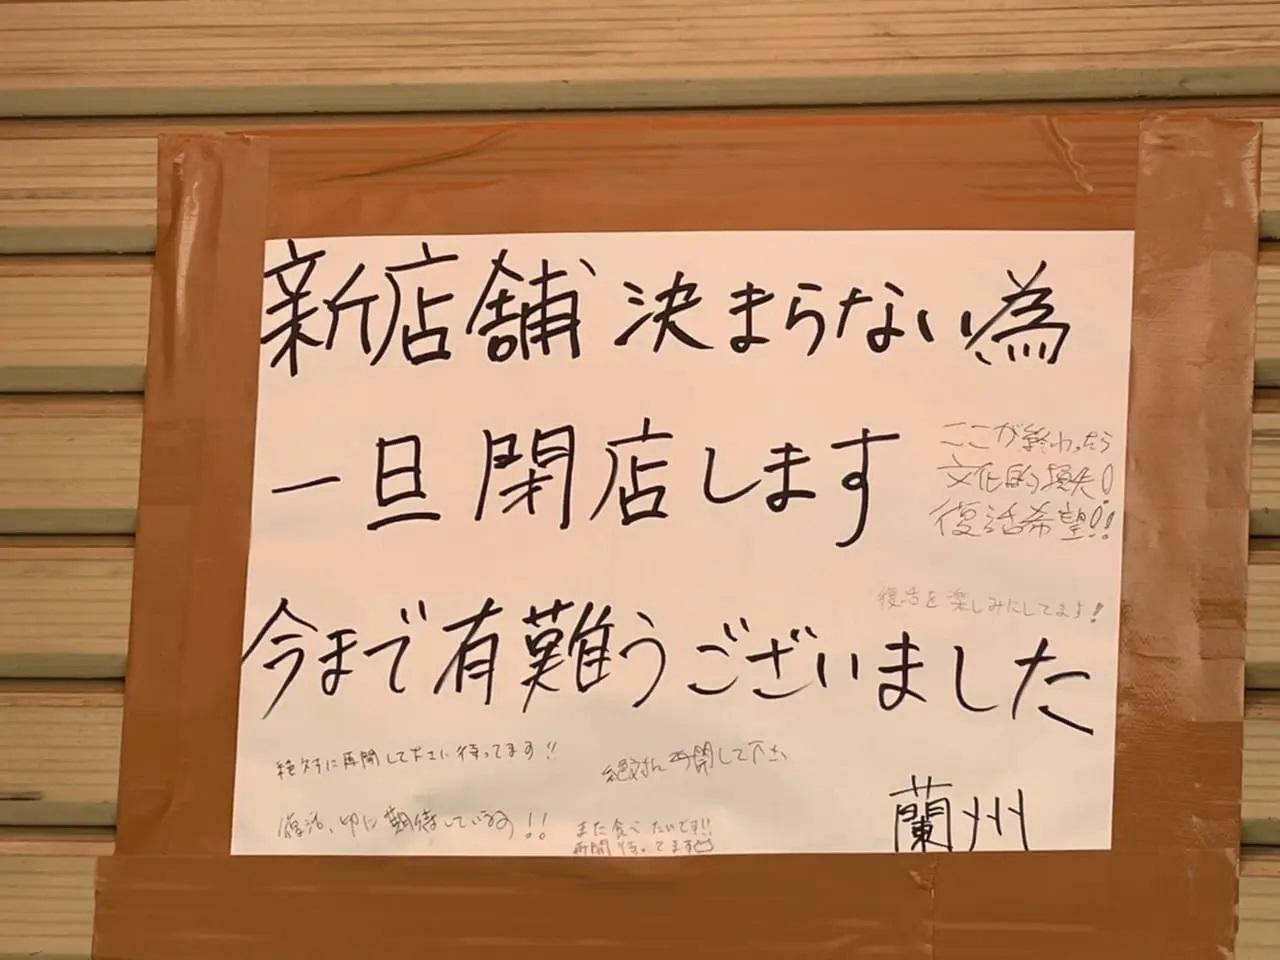 新店舗決まらない為
一旦閉店します
ここが終わったら
文化的損失!
復活希望!!
復活を楽しみにしてます!
今まで有難うございました
絶対に再開して下さい待ってます!!
絶対に再開して下さい
復活、切に期待しています!!
また食べたいです!!
再開待ってます
蘭州